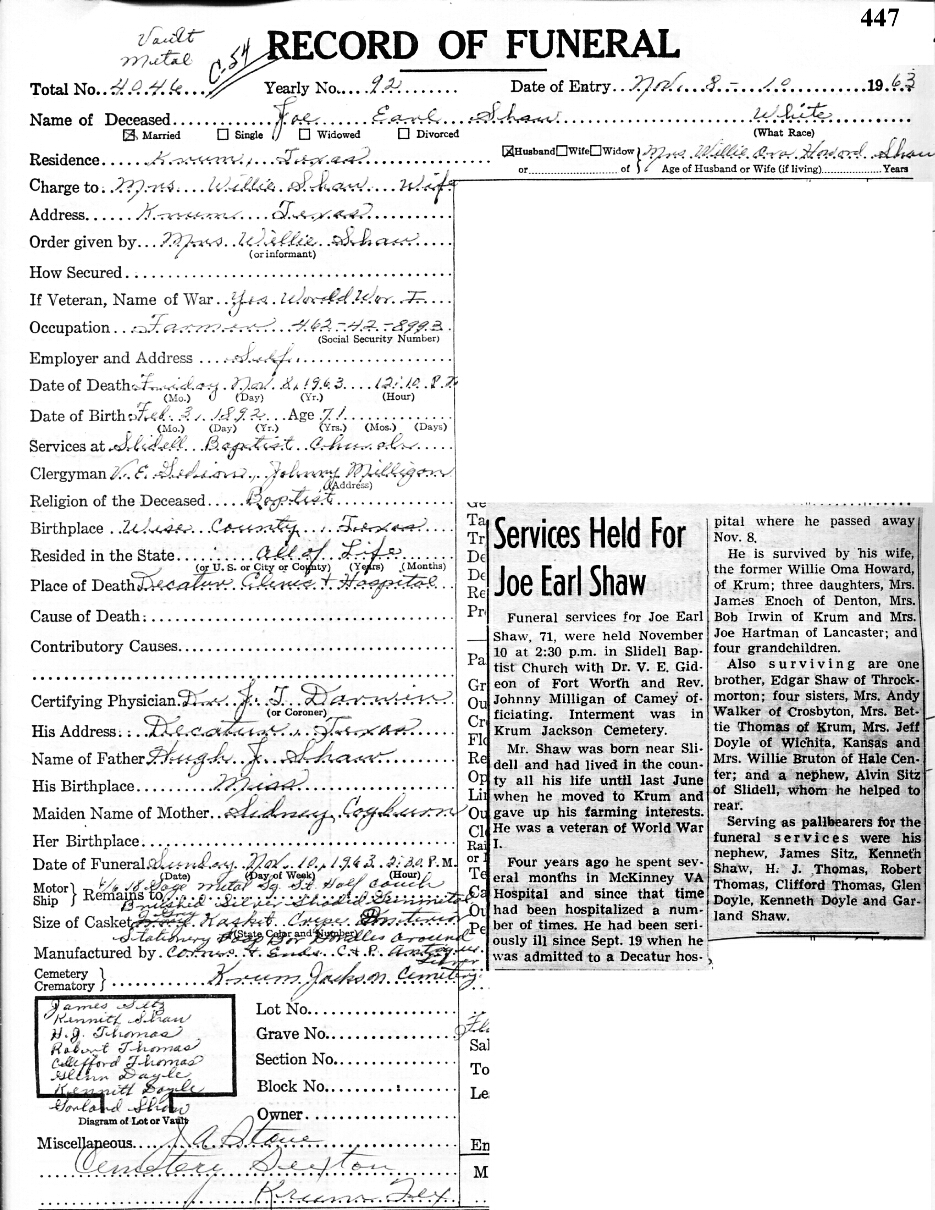 447
Vault
Metal
C.54
RECORD OF FUNERAL
Total No. 4046 Yearly No. 92 Date of Entry Nov. 8 - 10 1963
Name of Deceased Joe Earl Shaw White
☒ Married ☐ Single ☐ Widowed ☐ Divorced (What Race)
Residence Krum, Texas ☒Husband☐Wife☐Widow Mrs Willie Howard Shaw
or of Age of Husband or Wife (if living) Years
Charge to Mrs Willie Shaw Wife
Address Krum Texas
Order given by Mrs Willie Shaw
(or informant)
How Secured
If Veteran, Name of War Yes World War I
Occupation Farmer 462-42-8993
(Social Security Number)
Employer and Address Self
Date of Death Friday Nov. 8, 1963 12:10 P.M
(Mo.) (Day) (Yr.) (Hour)
Date of Birth Feb. 3, 1892 Age 71
(Mo.) (Day) (Yr.) (Yrs.) (Mos.) (Days)
Services at Slidell Baptist Church
Clergyman V. E. Johnny Milligan
(Address)
Religion of the Deceased Baptist
Birthplace Wise County, Texas
Resided in the State all of Life
(or U. S. or City or County) (Years) (Months)
Place of Death Decatur Clinic + Hospital
Cause of Death:
Contributory Causes
Certifying Physician Dr. J. T. Darwin
(or Coroner)
His Address: Decatur, Texas
Name of Father Hugh J. Shaw
His Birthplace Miss
Maiden Name of Mother Sidney Cogburn
Her Birthplace
Date of Funeral Sunday Nov. 10, 1963 2:30 P.M.
(Date) (Day of Week) (Hour)
Motor
Ship } Remains to 6/6 18 Gage metal Sq. St. Half Couch
Size of Casket
(State Color and Number)
Stationery around
Manufactured by
Cemetery
Crematory } Krum Jackson Cemetery
James Sitz
Kennith Shaw
H.J. Thomas
Robert Thomas
Clifford Thomas
Glenn Doyle
Kennith Doyle
Garland Shaw
Diagram of Lot or Vault
Lot No.
Grave No.
Section No.
Block No.
Owner
Miscellaneous J A Stone
Cemetery Sexton
Krum Tex
Ge
Ta
Tr
De
De
Re
Pr
Pa
Gr
Ou
Cr
Flo
Re
Op
Lin
Ou
Cle
Rai
or I
Te
Ca
Ou
Pe
Sal
To
Le
En
M
Services Held For
Joe Earl Shaw
Funeral services for Joe Earl
Shaw, 71, were held November
10 at 2:30 p.m. in Slidell Bap-
tist Church with Dr. V. E. Gid-
eon of Fort Worth and Rev.
Johnny Milligan of Camey of-
ficiating. Interment was in
Krum Jackson Cemetery.
Mr. Shaw was born near Sli-
dell and had lived in the coun-
ty all his life until last June
when he moved to Krum and
gave up his farming interests.
He was a veteran of World War
I.
Four years ago he spent sev-
eral months in McKinney VA
Hospital and since that time
had been hospitalized a num-
ber of times. He had been seri-
ously ill since Sept. 19 when he
was admitted to a Decatur hos-
pital where he passed away
Nov. 8.
He is survived by his wife,
the former Willie Oma Howard,
of Krum; three daughters, Mrs.
James Enoch of Denton, Mrs.
Bob Irwin of Krum and Mrs.
Joe Hartman of Lancaster; and
four grandchildren.
Also surviving are one
brother, Edgar Shaw of Throck-
morton; four sisters, Mrs. Andy
Walker of Crosbyton, Mrs. Bet-
tie Thomas of Krum, Mrs. Jeff
Doyle of Wichita, Kansas and
Mrs. Willie Bruton of Hale Cen-
ter; and a nephew, Alvin Sitz
of Slidell, whom he helped to
rear.
Serving as pallbearers for the
funeral services were his
nephew, James Sitz, Kenneth
Shaw, H. J. Thomas, Robert
Thomas, Clifford Thomas, Glen
Doyle, Kenneth Doyle and Gar-
land Shaw.